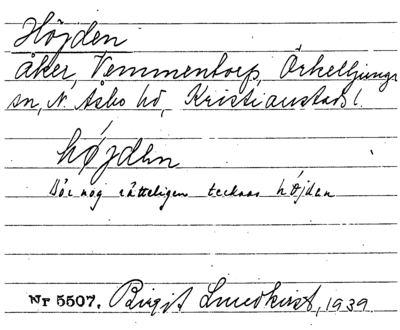 Höjden
åker, Vemmentorp, Örkelljunga
sn, N. Åsbo hd, Kristianstads l.
højden
Bör nog rätteligen tecknas højdan
Nr 5507. Birgit Lundkvist, 1939.